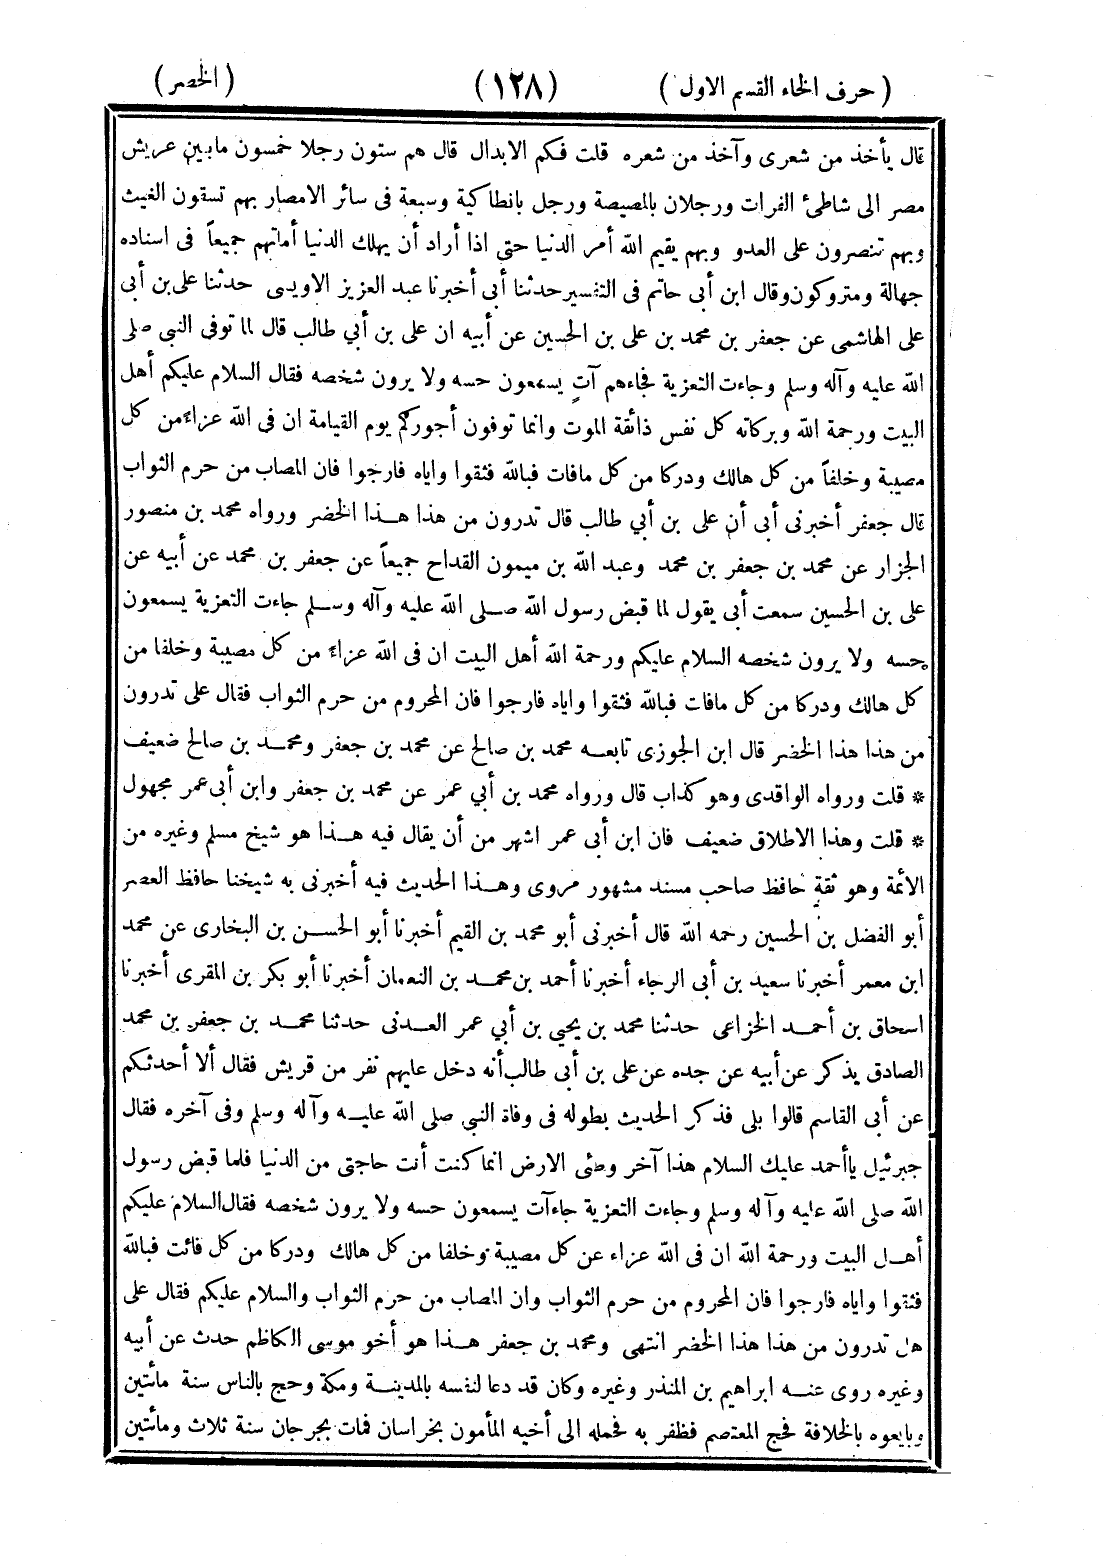 ( حرف الخاء القسم الاول ) (١٢٨) (الخضر)
قال يأخذ من شعرى وآخذ من شعره قلت فكم الابدال قال هم ستون رجلا خمسون مابين عريش
مصر الى شاطئ الفرات ورجلان بالمصيصة ورجل بانطاكية وسبعة فى سائر الامصار بهم تسقون الغيث
وبهم تنصرون على العدو وبهم يقيم الله أمر الدنيا حتى اذا أراد أن يهلك الدنيا أماتهم جميعاً فى اسناده
جهالة ومتروكون وقال ابن أبى حاتم فى التفسير حدثنا أبى أخبرنا عبد العزيز الاويسى حدثنا على بن أبى
على الهاشمى عن جعفر بن محمد بن على بن الحسين عن أبيه ان على بن أبي طالب قال لما توفى النبي صلى
الله عليه وآله وسلم وجاءت التعزية فجاءهم آتٍ يسمعون حسه ولا يرون شخصه فقال السلام عليكم أهل
البيت ورحمة الله وبركاته كل نفس ذائقة الموت وانما توفون أجوركم يوم القيامة ان فى الله عزاء من كل
مصيبة وخلفاً من كل هالك ودركا من كل مافات فبالله فثقوا واياه فارجوا فان المصاب من حرم الثواب
قال جعفر أخبرنى أبى أن على بن أبي طالب قال تدرون من هذا هـذا الخضر ورواه محمد بن منصور
الجزار عن محمد بن جعفر بن محمد وعبد الله بن ميمون القداح جميعاً عن جعفر بن محمد عن أبيه عن
على بن الحسين سمعت أبى يقول لما قبض رسول الله صلى الله عليه وآله وسلم جاءت التعزية يسمعون
حسه ولا يرون شخصه السلام عليكم ورحمة الله أهل البيت ان فى الله عزاء من كل مصيبة وخلفا من
كل هالك ودركا من كل مافات فبالله فثقوا واياه فارجوا فان المحروم من حرم الثواب فقال على تدرون
من هذا هذا الخضر قال ابن الجوزى تابعه محمد بن صالح عن محمد بن جعفر ومحمد بن صالح ضعيف
* قلت ورواه الواقدى وهو كذاب قال ورواه محمد بن أبي عمر عن محمد بن جعفر وابن أبى عمر مجهول
* قلت وهذا الاطلاق ضعيف فان ابن أبى عمر اشهر من أن يقال فيه هـذا هو شيخ مسلم وغيره من
الأئمة وهو ثقة حافظ صاحب مسند مشهور مروى وهـذا الحديث فيه أخبرنى به شيخنا حافظ العصر
أبو الفضل بن الحسين رحمه الله قال أخبرنى أبو محمد بن القيم أخبرنا أبو الحسن بن البخارى عن محمد
ابن معمر أخبرنا سعيد بن أبى الرجاء أخبرنا أحمد بن محمد بن النعمان أخبرنا أبو بكر بن المقرى أخبرنا
اسحاق بن أحمد الخزاعى حدثنا محمد بن يحيي بن أبي عمر العدنى حدثنا محمد بن جعفر بن محمد
الصادق يذكر عن أبيه عن جده عن على بن أبى طالب أنه دخل عليهم نفر من قريش فقال ألا أحدثكم
عن أبى القاسم قالوا بلى فذكر الحديث بطوله فى وفاة النبي صلى الله عليه وآله وسلم وفى آخره فقال
جبرئيل ياأحمد عليك السلام هذا آخر وطئى الارض انما كنت أنت حاجتى من الدنيا فلما قبض رسول
الله صلى الله عليه وآله وسلم وجاءت التعزية جاءآت يسمعون حسه ولا يرون شخصه فقال السلام عليكم
أهـل البيت ورحمة الله ان فى الله عزاء عن كل مصيبة وخلفا من كل هالك ودركا من كل فائت فبالله
فثقوا واياه فارجوا فان المحروم من حرم الثواب وان المصاب من حرم الثواب والسلام عليكم فقال على
هل تدرون من هذا هذا الخضر انتهى ومحمد بن جعفر هـذا هو أخو موسى الكاظم حدث عن أبيه
وغيره روى عنه ابراهيم بن المنذر وغيره وكان قد دعا لنفسه بالمدينة ومكة وحج بالناس سنة مائتين
وبايعوه بالخلافة فحج المعتصم فظفر به فحمله الى أخيه المأمون بخراسان فمات بجرجان سنة ثلاث ومائتين